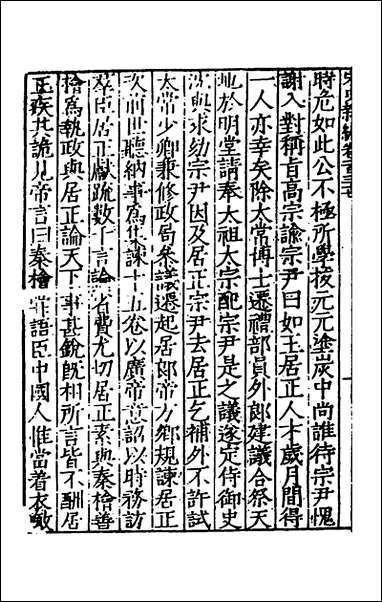 宋史新編卷百三七
時危如此公不極所學拔元元塗炭中尚誰待宗尹愧
謝入對稱旨高宗諭宗尹曰如王居正人才歲月間得
一人亦幸矣除太常博士遷禮部員外郎建議合祭天
地於明堂請奉太祖太宗配宗尹是之議遂定侍御史
沈與求劾宗尹因及居正宗尹去居正乞補外不許試
太常少卿兼修政局參議遷起居郎帝方鄉規諫居正
次前世聽納事爲集諫十五卷以廣帝意詔以時務訪
羣臣居正獻疏數千言論省費尤切居正素與秦檜善
檜爲執政與居正論天下事甚銳旣相所言皆不酬居
正疾其詭見帝言曰秦檜嘗語臣中國人惟當着衣噉